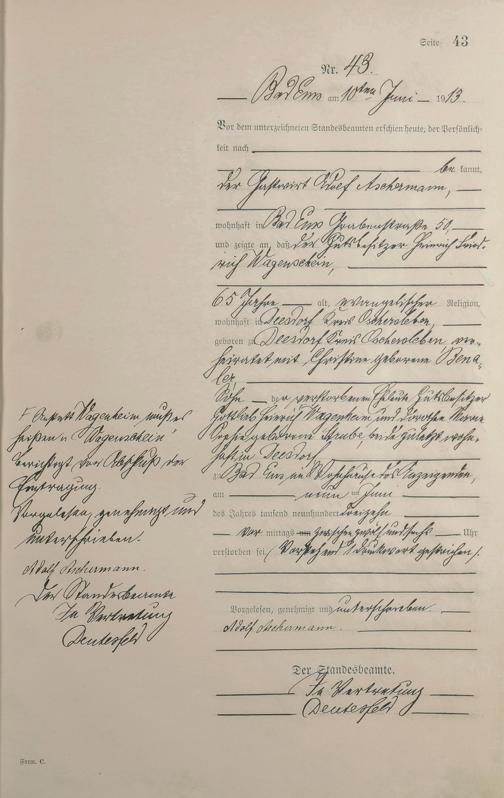 Seite 43
Nr. 43.
Bad Ems am 10ten Juni 1913.
Vor dem unterzeichneten Standesbeamten erschien heute, der Persönlich-
keit nach
be kannt,
der Gastwirt Adolf Aschermann,
wohnhaft in Bad Ems Grabenstraße 50,
und zeigte an, daß der Gutsbesitzer Heinrich Fried-
rich Wagenschein,
65 Jahre alt, evangelischer Religion,
wohnhaft in Deesdorf Kreis Oschersleben,
geboren zu Deesdorf Kreis Oschersleben, ver-
heiratet mit Christine geborene
Sohn der verstorbenen Eheleute Gutsbesitzer
Gottlieb Heinrich Wagenheim und Dorothee
Sophie geborene Strube, beide zuletzt wohn-
haft in Deesdorf
zu Bad Ems im des Anzeigenden,
am neun ten Juni
des Jahres tausend neunhundert dreizehn
vor mittags zwischen zwölf und sechs Uhr
verstorben sei, (Vorstehend 1 Druckwort gestrichen).
Vorgelesen, genehmigt und unterschrieben
Adolf Aschermann.
Der Standesbeamte.
In Vertretung
Deutesfeld
Anstatt Wagenheim muß es
heißen Wagenschein
Berichtigt vor Abschluß der
Eintragung.
Vorgelesen, genehmigt und
unterschrieben.
Adolf Aschermann.
Der Standesbeamte
In Vertretung
Deutesfeld
Form. C.